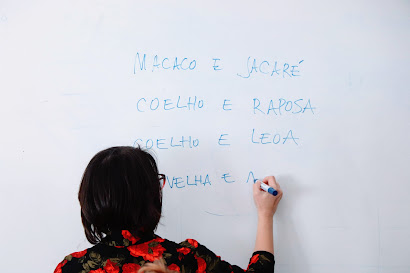 MACACO E JACARÉ
COELHO E RAPOSA
COELHO E LEOA
VELHA E